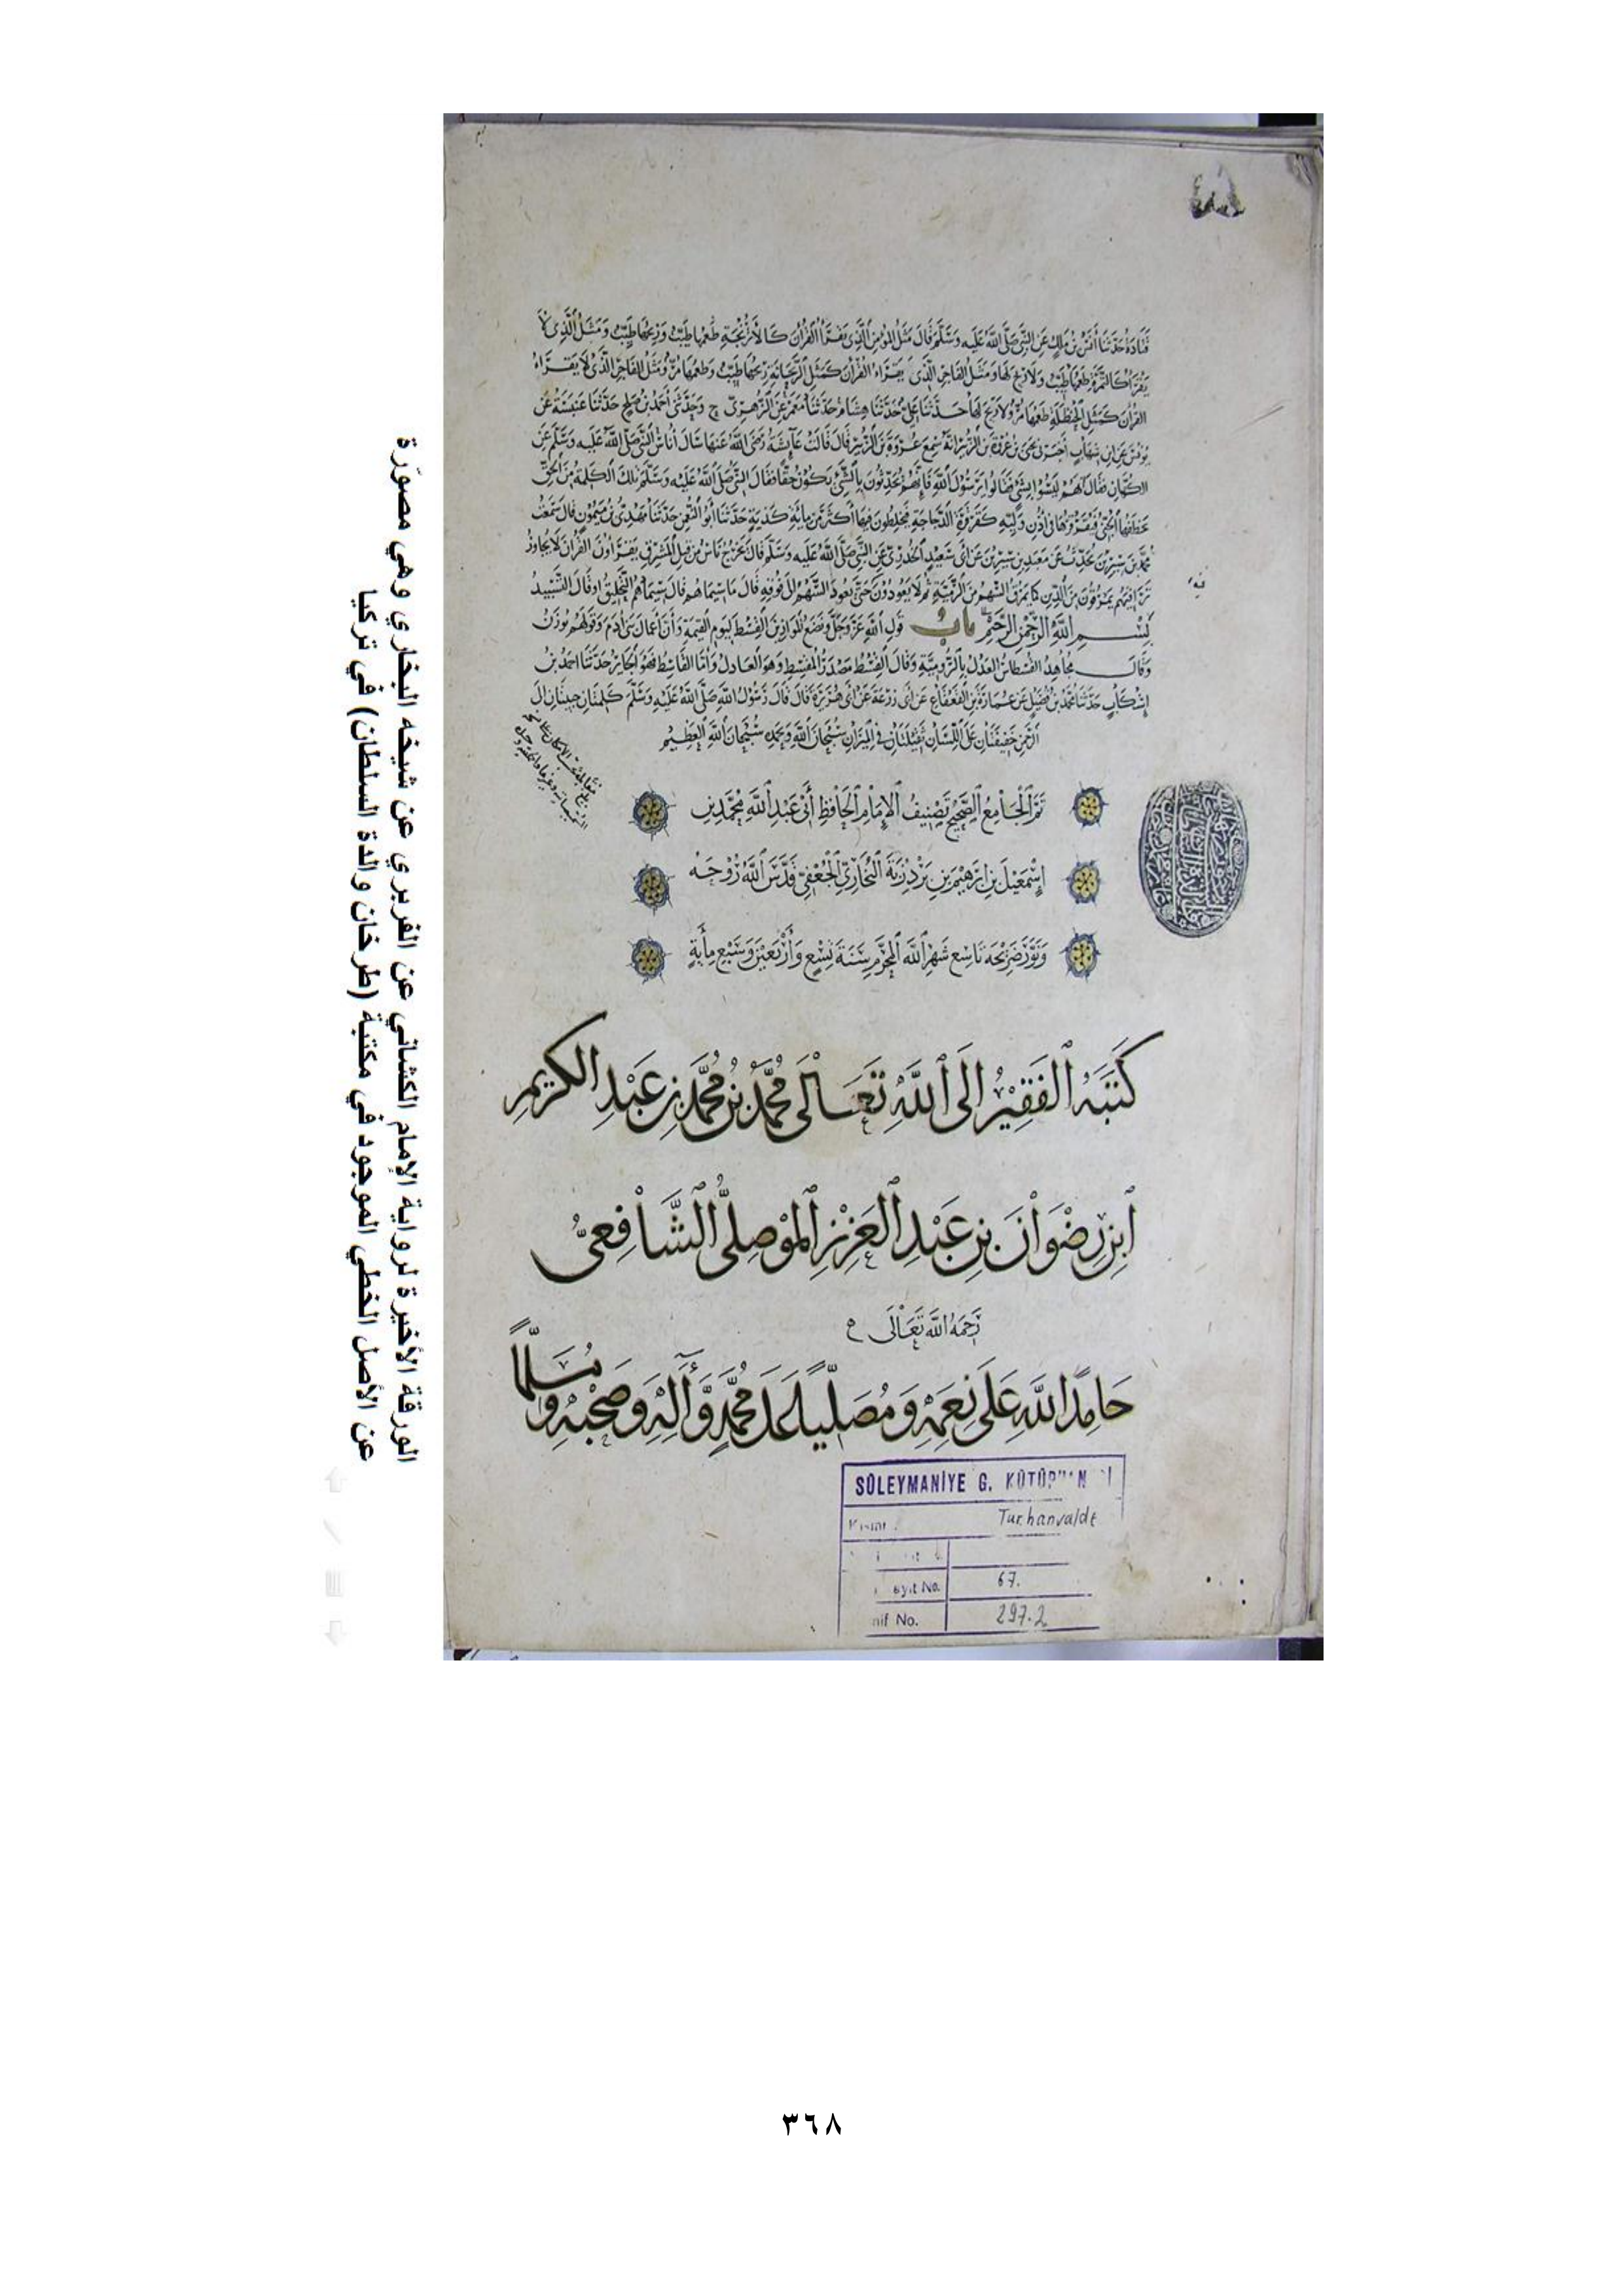 الورقة الأخيرة لرواية الإمام الكشاني عن الفربري عن شيخه البخاري وهي مصورة
عن الأصل الخطي الموجود في مكتبة (طرخان والدة السلطان) في تركيا
قتادة حدثنا أنس بن ملك عن النبي صلى الله عليه وسلم قال مثل المؤمن الذي يقرأ القرآن كالأترنجة طعمها طيب وريحها طيب ومثل الذي لا
يقرأ كالتمرة طعمها طيب ولا ريح لها ومثل الفاجر الذي يقراء القرآن كمثل الريحانة ريحها طيب وطعمها مر ومثل الفاجر الذي لا يقراء
القرآن كمثل الحنظلة طعمها مر ولا ريح لها حدثنا علي حدثنا هشام حدثنا معمر عن الزهري ح وحدثني أحمد بن صالح حدثنا عنبسة عن
يونس عن ابن شهاب أخبرني يحيى بن عروة بن الزبير أنه سمع عروة بن الزبير قال قالت عائشة رضي الله عنها سأل أناس النبي صلى الله عليه وسلم عن
الكهان فقال إنهم ليسوا بشئ فقالوا يرسول الله فإنهم يحدثون بالشئ يكون حقا فقال النبي صلى الله عليه وسلم تلك الكلمة من الحق
يخطفها الجني فيقرقرها في أذن وليه كقرقرة الدجاجة فيخلطون فيها أكثر من ماية كذبة حدثنا أبو النعمن حدثنا مهدي بن ميمون قال سمعت
محمد بن سيرين يحدث عن معبد بن سيرين عن أبي سعيد الخدري عن النبي صلى الله عليه وسلم قال يخرج ناس من قبل المشرق يقرأون القرآن لا يجاوز
تراقيهم يمرقون من الدين كما يمرق السهم من الرمية ثم لا يعودون حتى يعود السهم إلى فوقه قال ما سيماهم قال سيماهم التحليق أو قال التسبيد
بسم الله الرحمن الرحيم باب قول الله عز وجل ونضع الموازين القسط ليوم القيمة وأن أعمال بني آدم وقولهم يوزن
وقال مجاهد القسطاس العدل بالرومية وقال القسط مصدر المقسط وهو العادل وأما القاسط فهو الجاير حدثنا احمد بن
إشكاب حدثنا محمد بن فضيل عن عمارة بن القعقاع عن أبي زرعة عن أبي هريرة قال قال رسول الله صلى الله عليه وسلم كلمتان حبيبتان إلى
الرحمن خفيفتان على اللسان ثقيلتان في الميزان سبحان الله وبحمده سبحان الله العظيم
تم الجامع الصحيح تصنيف الإمام الحافظ أبي عبد الله محمد بن
إسمعيل بن إبرهيم بن بردزبة البخاري الجعفي قدس الله روحه
ونور ضريحه تاسع شهر الله المحرم سنة تسع وأربعين وسبع مأية
كتبه الفقير إلى الله تعالى محمد بن محمد بن عبد الكريم
ابن رضوان بن عبد العزيز الموصلي الشافعي
رحمه الله تعالى
حامدا لله على نعمه ومصليا على محمد وآله وصحبه ومسلما
SÜLEYMANİYE G.
Turhanvalde
67.
No. 297.2
٣٦٨